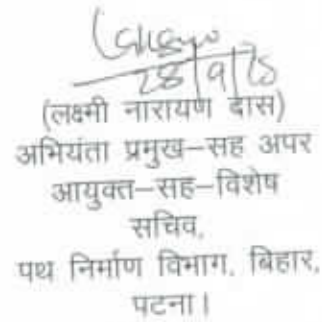 28/9/25
(लक्ष्मी नारायण दास)
अभियंता प्रमुख–सह अपर
आयुक्त–सह–विशेष
सचिव,
पथ निर्माण विभाग, बिहार,
पटना।